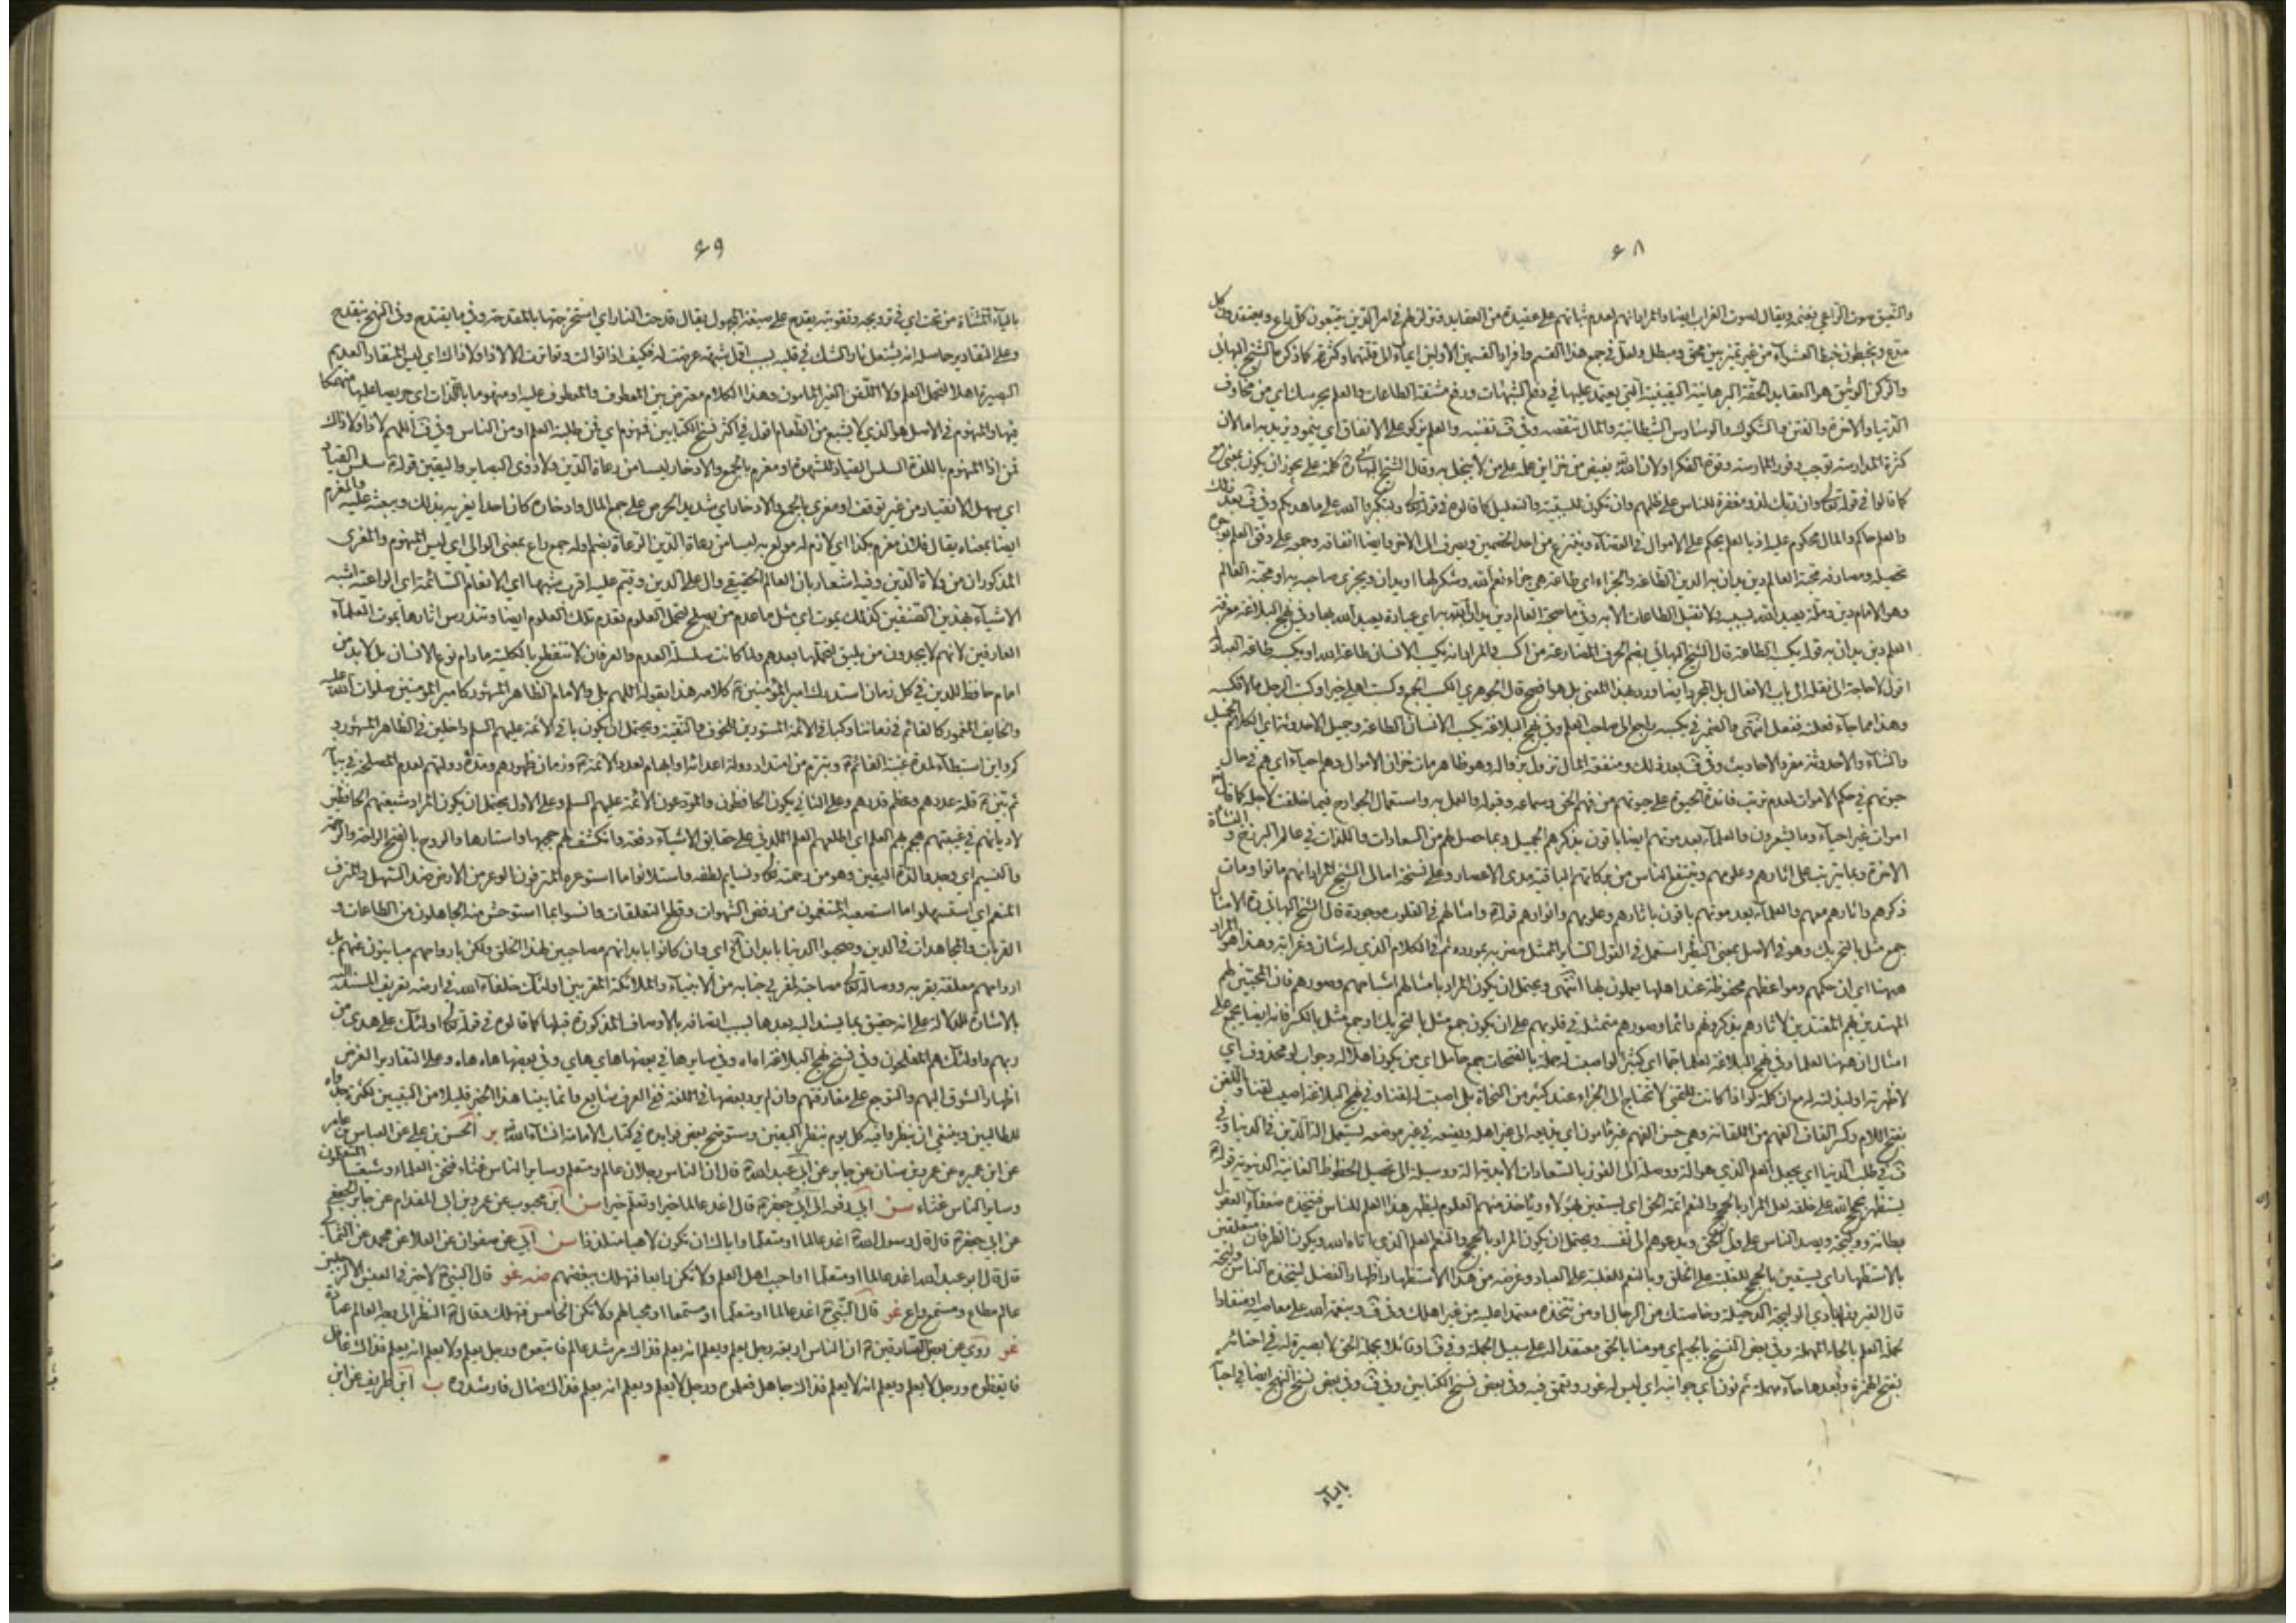 ۶۸
والنعيق صوت الراعي بغنمه ويقال لصوت الغراب ايضا والمراد انهم لعدم ثباتهم على عقيدة من العقايد وتزلزلهم في امر الدين يتبعون كل داع ويعتقدون بكل
مدع ويخبطون خبط العشواء من غير تميز بين محق ومبطل ولعل في جمع هذا القسم وافراد القسمين الاولين ايماء الى قلتهما وكثرته كما ذكره الشيخ البهائي
والركن الوثيق هو العقايد الحقة البرهانية اليقينية التي يعتمد عليها في دفع الشبهات ورفع مشقة الطاعات والعلم يحرسك اي من مخاوف
الدنيا والاخرة والفتن والشكوك والوساوس الشيطانية والمال تنقصه وفي ف تفنيه والعلم يزكو على الانفاق اي ينمو ويزيد به اما لان
كثرة المدارسة توجب وفور الممارسة وقوة الفكر او لان الله يفيض من خزاين علمه على من لا يبخل به وقال الشيخ البهائي ره كلمة على يجوز ان يكون بمعنى مع
كما قالوا في قوله تعالى وان ربك لذو مغفرة للناس على ظلمهم وان تكون للسببية والتعليل كما قالوه في قوله تعالى ولتكبروا الله على ما هديكم وفي ف بعد ذلك
والعلم حاكم والمال محكوم عليه اذ بالعلم يحكم على الاموال في القضاء وينتزع من احد الخصمين ويصرف الى الاخر وايضا انفاقه وجمعه على وفق العلم بوجوه
تحصيله ومصارفه محبة العالم دين يدان به الدين الطاعة والجزاء اي طاعة هي جزاء نعم الله وشكر لها او يدان ويجزى صاحبه به او محبة العالم
وهو الامام دين وملة يعبد الله بسببه ولا تقبل الطاعات الا به وفي ما صحبة العالم دين يدان الله به اي عبادة يعبد الله بها وفي نهج البلاغة معرفة
العلم دين يدان به قوله يكسبه الطاعة قال الشيخ البهائي بضم الحرف المضارعة من اكسب والمراد انه يكسب الانسان طاعة الله او يكسبه طاعة العباد
اقول لا حاجة الى نقله الى باب الافعال بل المجرد ايضا ورد بهذا المعنى بل هو افصح قال الجوهري الكسب الجمع وكسبت اهلي خيرا وكسبت الرجل مالا فكسبه
وهذا مما جاء فعلته ففعل انتهى والضمير في يكسبه راجع الى صاحب العلم وفي نهج البلاغة يكسب الانسان الطاعة وجميل الاحدوثة اي الكلام الجميل
والثناء والاحدوثة مفرد الاحاديث وفي ف بعد ذلك ومنفعة المال تزول بزواله وهو ظاهر مات خزان الاموال وهم احياء اي هم في حال
حيوتهم في حكم الاموات لعدم ترتب فائدة الحيوة على حيوتهم من فهم الحق وسماعه وقبوله والعمل به واستعمال الجوارح فيما خلقت لاجله كما قال تعالى
اموات غير احياء وما يشعرون والعلماء بعد موتهم ايضا باقون بذكرهم الجميل وبما حصل لهم من السعادات واللذات في عالم البرزخ والنشاة
الاخرة وبما يترتب على اثارهم وعلومهم وينتفع الناس من بركاتهم الباقية مدى الاعصار وعلى نسخة امالي الشيخ المراد انهم ماتوا ومات
ذكرهم واثارهم معهم والعلماء بعد موتهم باقون باثارهم وعلومهم وانوارهم قوله ع وامثالهم في القلوب موجودة قال الشيخ البهائي ره الامثال
جمع مثل بالتحريك وهو في الاصل بمعنى النظير استعمل في القول الساير الممثل مضربه بمورده ثم في الكلام الذي له شان وغرابة وهذا هو المراد
هيهنا اي ان حكمهم ومواعظهم محفوظة عند اهلها يعملون بها انتهى ويحتمل ان يكون المراد بامثالهم اشباحهم وصورهم فان المحبين لهم
المهتدين بهم المقتدين لاثارهم يذكرونهم دائما وصورهم متمثل في قلوبهم على ان يكون جمع مثل بالتحريك او جمع مثل بالكسر فانه ايضا يجمع على
امثال ان هيهنا لعلما وفي نهج البلاغة لعلما جما اي كثيرا لو اصبت له حملة بالفتحات جمع حامل اي من يكون اهلا له وجواب لو محذوف اي
لاظهرته او لبذلته له مع ان كلمة لو اذا كانت للتمني لا تحتاج الى الجزاء عند كثير من النحاة بلى اصبت له لقنا وفي نهج البلاغة اصيب لقنا واللقن
بفتح اللام وكسر القاف الفهم من اللقانة وهي حسن الفهم غير مامون اي يذيعه الى غير اهله ويضعه في غير موضعه يستعمل الة الدين في الدنيا وفي
ف في طلب الدنيا اي يجعل العلم الذي هو الة ووسيلة الى الفوز بالسعادات الابدية الة ووسيلة الى تحصيل الحظوظ الفانية الدنيوية قوله ع
يستظهر بحجج الله على خلقه لعل المراد بالحجج والنعم ائمة الحق اي يستعين بهؤلاء وياخذ منهم العلوم ليظهر هذا العلم للناس فيتخذه ضعفاء العقول
بطانة ووليجة ويصد الناس عن ولي الحق ويدعوهم الى نفسه ويحتمل ان يكون المراد بالحجج والنعم العلم الذي اتاه الله ويكون الظرفان متعلقين
بالاستظهار اي يستعين بالحجج للغلبة على الخلق وبالنعم للغلبة على العباد وغرضه من هذا الاستظهار اظهار الفضل ليتخذه الناس وليجة
قال الفيروزابادي الوليجة الدخيلة وخاصتك من الرجال او من تتخذه معتمدا عليه من غير اهلك وفي ف وبنعمة الله على معاصيه او منقادا
لحملة العلم بالحاء المهملة وفي بعض النسخ بالجيم اي مؤمنا بالحق معتقدا له على سبيل الجملة وفي ف او قائلا بجملة الحق لا بصيرة له في احنائه
بفتح الهمزة وبعدها حاء مهملة ثم نون اي جوانبه اي ليس له غور وتعمق فيه وفي بعض نسخ الكتابين وفي ف وفي بعض نسخ النهج ايضا في احيائه
بالياء
۶۹
بالياء المثناة من تحت اي في ترويجه وتقويته يقدح على صيغة المجهول يقال قدحت النار اي استخرجتها بالمقدحة وفي ما يقتدح وفي النهج ينقدح
وعلى التقادير حاصله انه يشتعل نار الشك في قلبه بسبب اول شبهة عرضت له فكيف اذا توالت وتواترت الا لا ذا ولا ذاك اي ليس المنقاد العديم
البصيرة اهلا لتحمل العلم ولا اللقن الغير المامون وهذا الكلام معترض بين المعطوف والمعطوف عليه او منهوما باللذات اي حريصا عليها منهمكا
فيها والمنهوم في الاصل هو الذي لا يشبع من الطعام اقول في اكثر نسخ الكتابين فمنهوم اي فمن طلبة العلم او من الناس وفي ف اللهم لا ذا ولا ذاك
فمن اذا المنهوم باللذة السلس القياد للشهوة او مغرم بالجمع والادخار ليسا من رعاة الدين ولا ذوى البصاير واليقين قوله ع سلس القياد
اي سهل الانقياد من غير توقف او مغرى بالجمع والادخار اي شديد الحرص على جمع المال وادخاره كان احدا يغريه بذلك ويبعثه عليه والمغرم
ايضا بمعناه يقال فلان مغرم بكذا اي لازم له مولع به ليسا من رعاة الدين الرعاة بضم اوله جمع راع بمعنى الوالي اي ليس المنهوم والمغرى
المذكوران من ولاة الدين وفيه اشعار بان العالم الحقيقي وال على الدين وقيم عليه اقرب شبها اي الانعام السائمة اي الراعية اشبه
الاشياء بهذين الصنفين كذلك يموت اي مثل ما عدم من يصلح لتحمل العلوم تعدم تلك العلوم ايضا وتندرس اثارها بموت العلماء
العارفين لانهم لا يجدون من يليق لتحملها بعدهم ولما كانت سلسلة العلم والعرفان لا تنقطع بالكلية ما دام نوع الانسان بل لابد من
امام حافظ للدين في كل زمان استدرك امير المؤمنين ع كلامه هذا بقوله اللهم بلى والامام الظاهر المشهور كامير المؤمنين صلوات الله عليه
والخايف المغمور كالقائم في زماننا وكباقي الائمة المستورين للخوف والتقية ويحتمل ان يكون باقي الائمة عليهم السلم داخلين في الظاهر المشهور و
كم واين استبطاء لمدة غيبة القائم ع وتبرم من امتداد دولة اعدائه او ابهام لعدد الائمة ع وزمان ظهورهم ومدة دولتهم لعدم المصلحة في بيانه
ثم بين ع قلة عددهم وعظم قدرهم وعلى الثاني يكون الحافظون والمودعون الائمة عليهم السلم وعلى الاول يحتمل ان يكون المراد شيعتهم الحافظين
لاديانهم في غيبتهم هجم بهم العلم اي اطلعهم العلم اللدني على حقايق الاشياء دفعة وانكشفت لهم حجبها واستارها والروح بالفتح الراحة والرحمة
والنسيم اي وجدوا لذة اليقين وهو من رحمته تعالى ونسايم لطفه واستلانوا ما استوعره المترفون الوعر من الارض ضد السهل والمترف
المنعم اي استسهلوا ما استصعبه المتنعمون من رفض الشهوات وقطع التعلقات وانسوا بما استوحش منه الجاهلون من الطاعات و
القربات والمجاهدات في الدين وصحبوا الدنيا بابدان اه اي وان كانوا بابدانهم مصاحبين لهذا الخلق ولكن بارواحهم مباينون عنهم بل
ارواحهم معلقة بقربه ووصاله تعالى مصاحبة لمقربي جنابه من الانبياء والملائكة المقربين اولئك خلفاء الله في ارضه تعريف المسند اليه
بالاشارة للدلالة على انه حقيق بما يسند اليه بعدها بسبب اتصافه بالاوصاف المذكورة قبلها كما قالوه في قوله تعالى اولئك على هدى من
ربهم واولئك هم المفلحون وفي نسخ نهج البلاغة اه اه وفي سايرها في بعضها هاي هاي وفي بعضها هاه هاه وعلى التقادير الغرض
اظهار الشوق اليهم والتوجع على مفارقتهم وان لم يرد بعضها في اللغة ففي العرف شايع وانما بينا هذا الخبر قليلا من التبيين لكثرة جدواه
للطالبين وينبغي ان ينظروا فيه كل يوم بنظر اليقين وسنوضح بعض فوايده في كتاب الامامة انشاء الله ير الحسن بن علي عن العباس بن عامر
عن ابن عميرة عن عمرو بن شمر عن جابر عن ابي عبد الله ع قال ان الناس رجلان عالم ومتعلم وساير الناس غثاء فنحن العلماء وشيعتنا المتعلمون
وساير الناس غثاء سن ابي رفعه الى ابي جعفر ع قال اغد عالما خيرا وتعلم خيرا سن ابن محبوب عن عمرو بن ابي المقدام عن جابر الجعفي
عن ابي جعفر ع قال قال رسول الله ص اغد عالما او متعلما واياك ان تكون لاهيا متلذذا سن ابي عن صفوان عن العلا عن محمد عن الثمالي
قال قال ابو عبد الله اغد عالما او متعلما او احب اهل العلم ولا تكن رابعا فتهلك ببغضهم ضه غو قال النبي ص لا خير في العيش الا لرجلين
عالم مطاع ومستمع واع غو قال النبي ص اغد عالما او متعلما او مستمعا او محبا لهم ولا تكن الخامس فتهلك وقال ص النظر الى وجه العالم عبادة
غو روي عن بعض الصادقين ع ان الناس اربعة رجل يعلم ويعلم انه يعلم فذاك مرشد عالم فاتبعوه ورجل يعلم ولا يعلم انه يعلم فذاك غافل
فايقظوه ورجل لا يعلم ويعلم انه لا يعلم فذاك جاهل فعلموه ورجل لا يعلم ويعلم انه يعلم فذاك ضال فارشدوه ب ابن طريف عن ابن